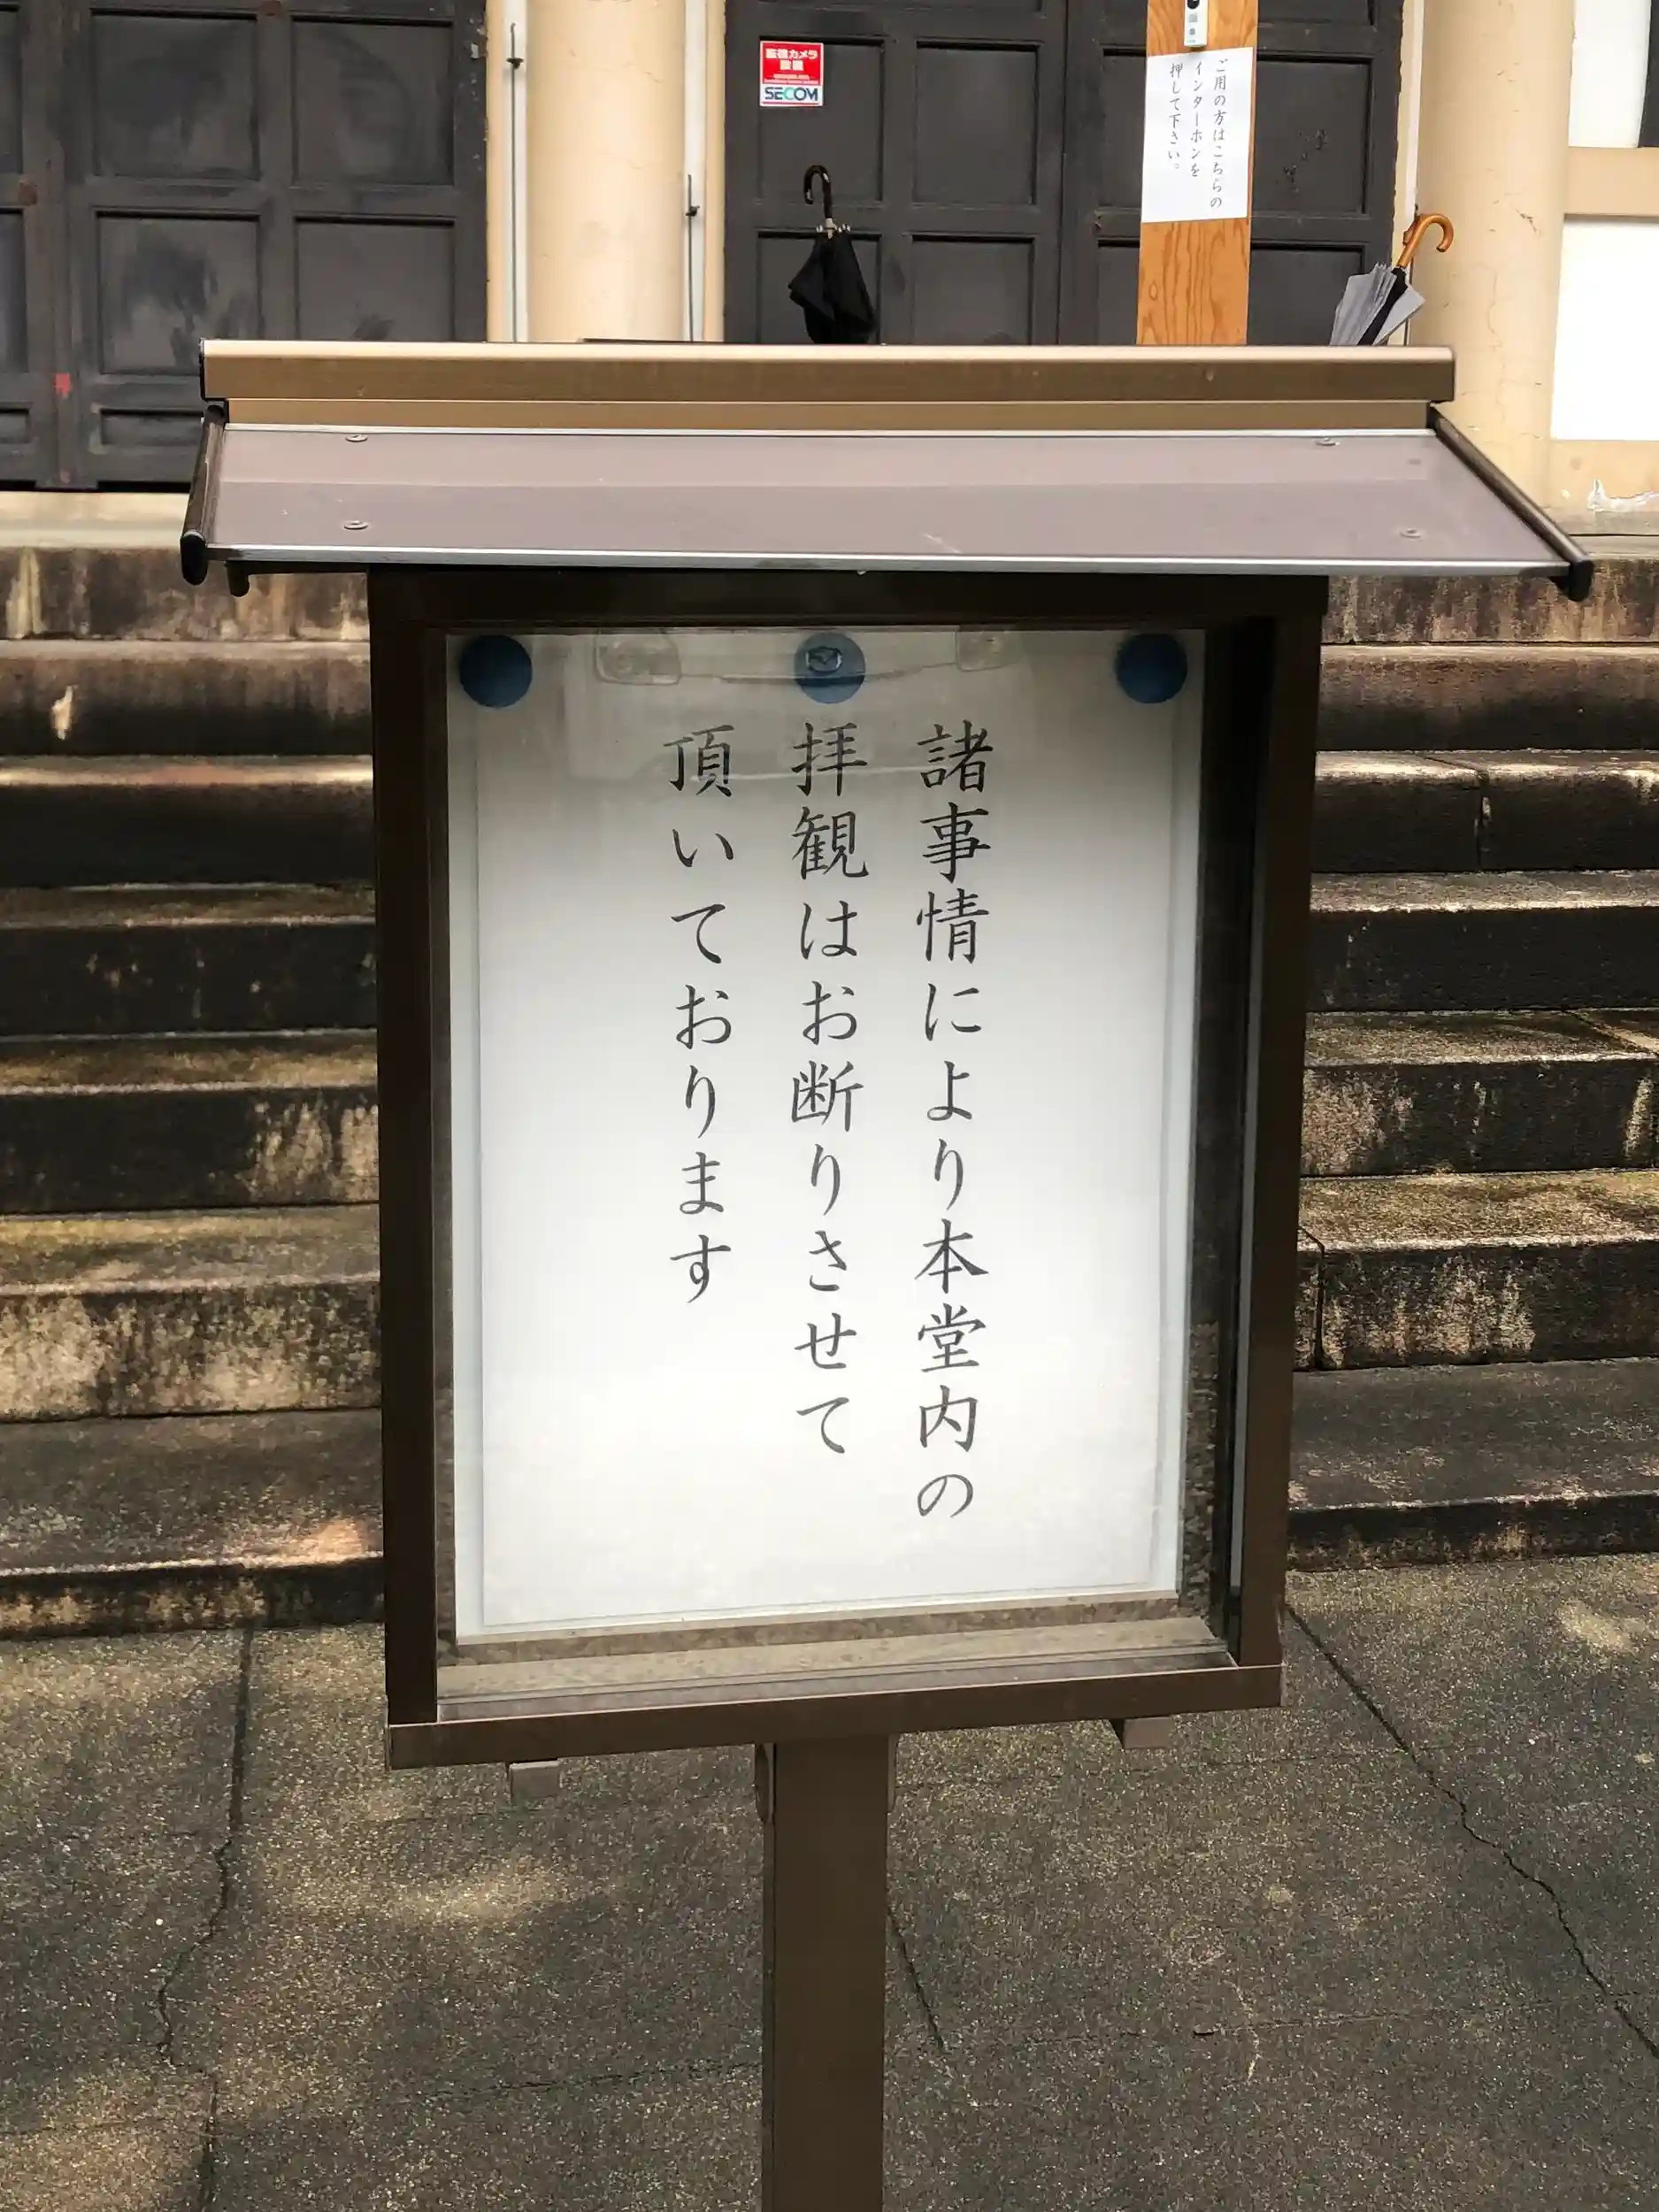 防犯カメラ
設置
SECOM
ご用の方はこちらの
インターホンを
押して下さい。
諸事情により本堂内の
拝観はお断りさせて
頂いております